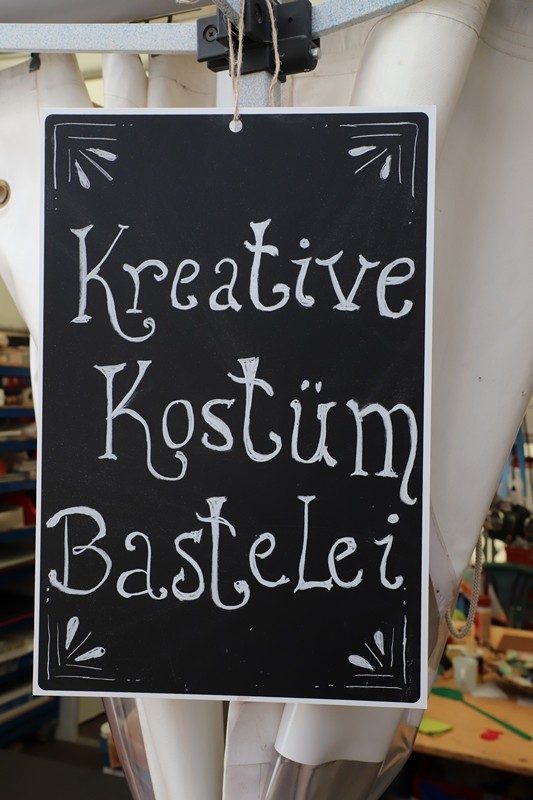 Kreative
Kostüm
Bastelei